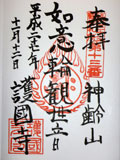 奉拝
神齢山
如意輪観世音
平成二七年
十一月十二日
護國寺